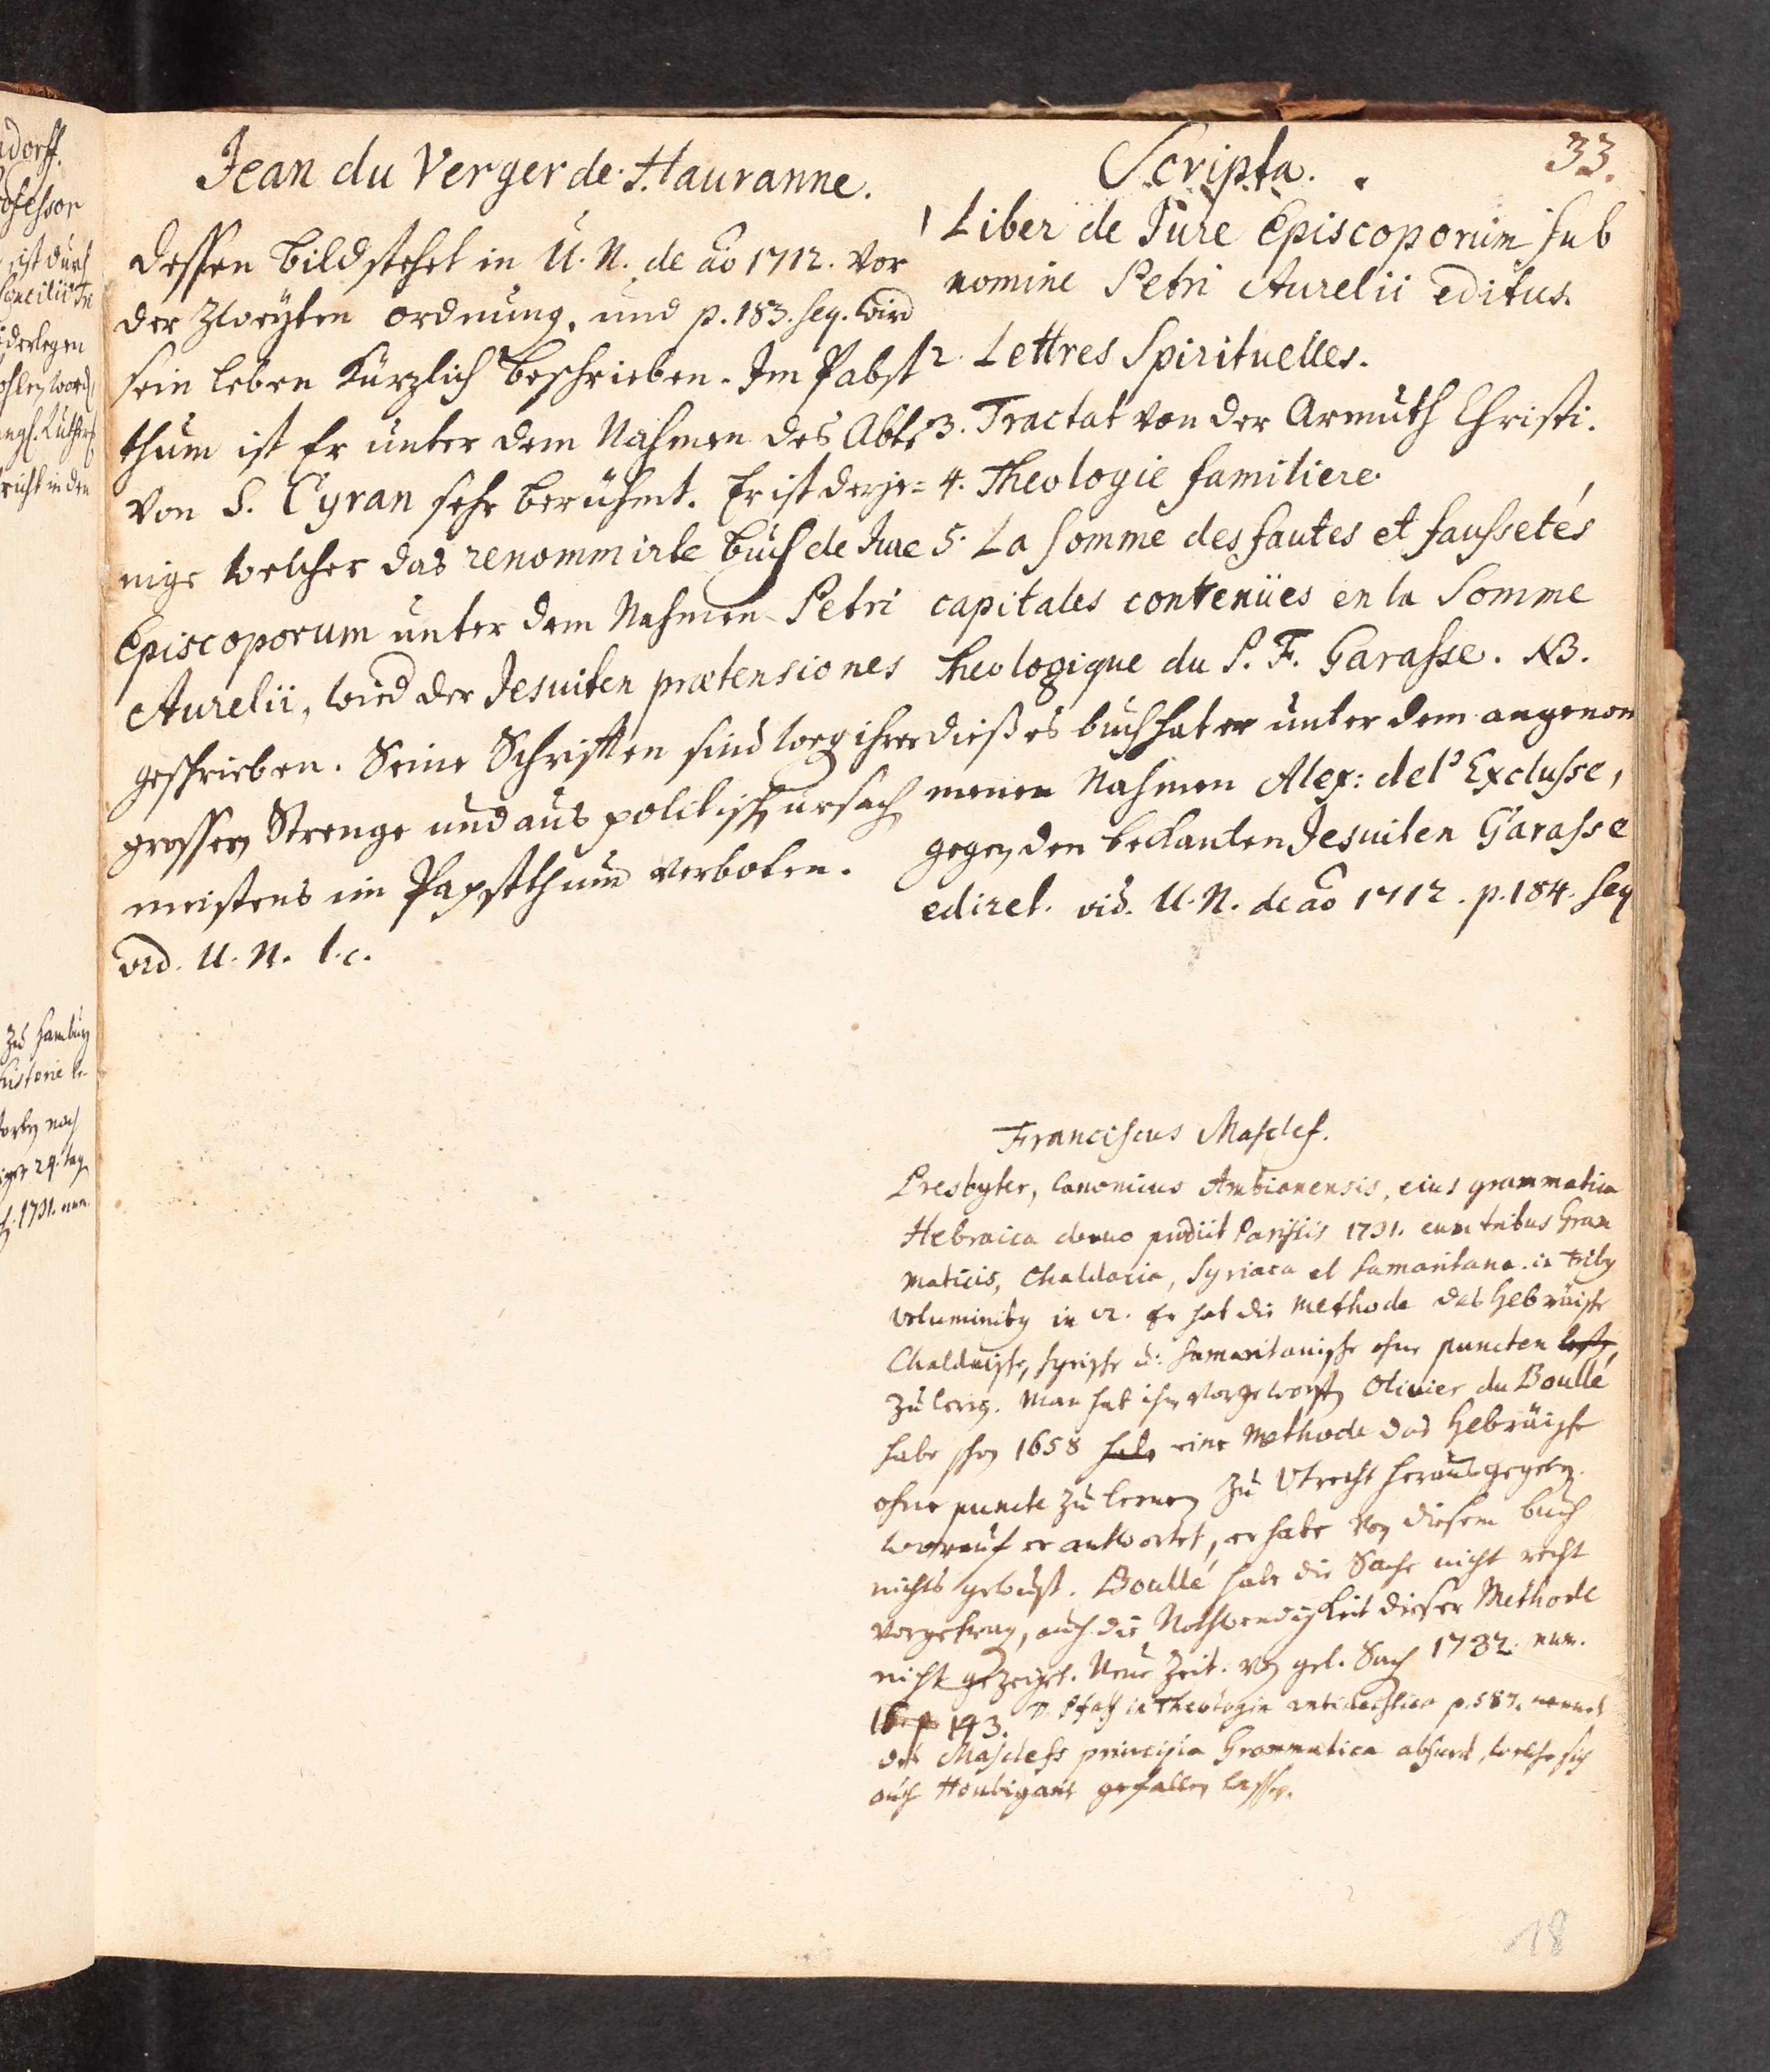 33.
Jean du Verger de Hauranne.
Dessen Bild stehet in U. N. de ao 1712. vor
der zweyten ordnung, und p. 183. seq. wird
sein leben kürzlich beschrieben. Im Pabst
thum ist Er unter dem Nahmen des Abts
von S. Cyran sehr berühmt. Er ist derje=
nige welcher das renommirte Buch de Jure
Episcoporum unter dem Nahmen Petri
Aurelii, wied der Jesuiten prætensiones
geschrieben. Seine Schrifften sind weg ihrer
grossen Strenge und aus politisch ursach
meistens im Papstthum verboten.
vid. U. N. l. c.
Scripta.
1 Liber de Jure Episcoporum sub
nomine Petri Aurelii editus.
2. Lettres Spirituelles.
3. Tractat von der Armuth Christi.
4. Theologie familiere.
5. La Somme des fautes et faussetés
capitales contenües en la Somme
theologique du P. F. Garasse. NB.
dießes buch hat er unter dem angenom
menen Nahmen Alex: del' Exclusse,
gegen den bekanten Jesuiten Garasse
ediret. vid. U. N. de ao 1712. p. 184. seq
Franciscus Masclef.
Presbyter, Canonicus Ambianensis, eius grammatica
Hebraica denuo prodiit Parisiis 1731. cum tribus Gram
maticis, Chaldaica, Syriaca et Samaritana in trib9
voluminib9 in 12. Er hat die Methode das Hebräische
Chaldäische, syrische u: Samaritanische ohne puncten
zu lern. Man hat ihm vorgeworffen Olivier du Boullé
habe schon 1658 habe eine Methode das Hebräische
ohne puncte zu lernen zu Utrecht herausgegeben.
worauf er antwortet, er habe von diesem buch
nichts gewust. Boullé habe die Sache nicht recht
vorgetrag, auch die Nothwendigkeit dieser Methode
nicht gezeiget. Neue Zeit. von gel. Sach 1732. num.
16 p 143. D. Pfaff in Theologia antideistica p. 587. nennet
des Masclefs principia Grammatica absurd, welche sich
auch Houbigant gefallen lassen.
18